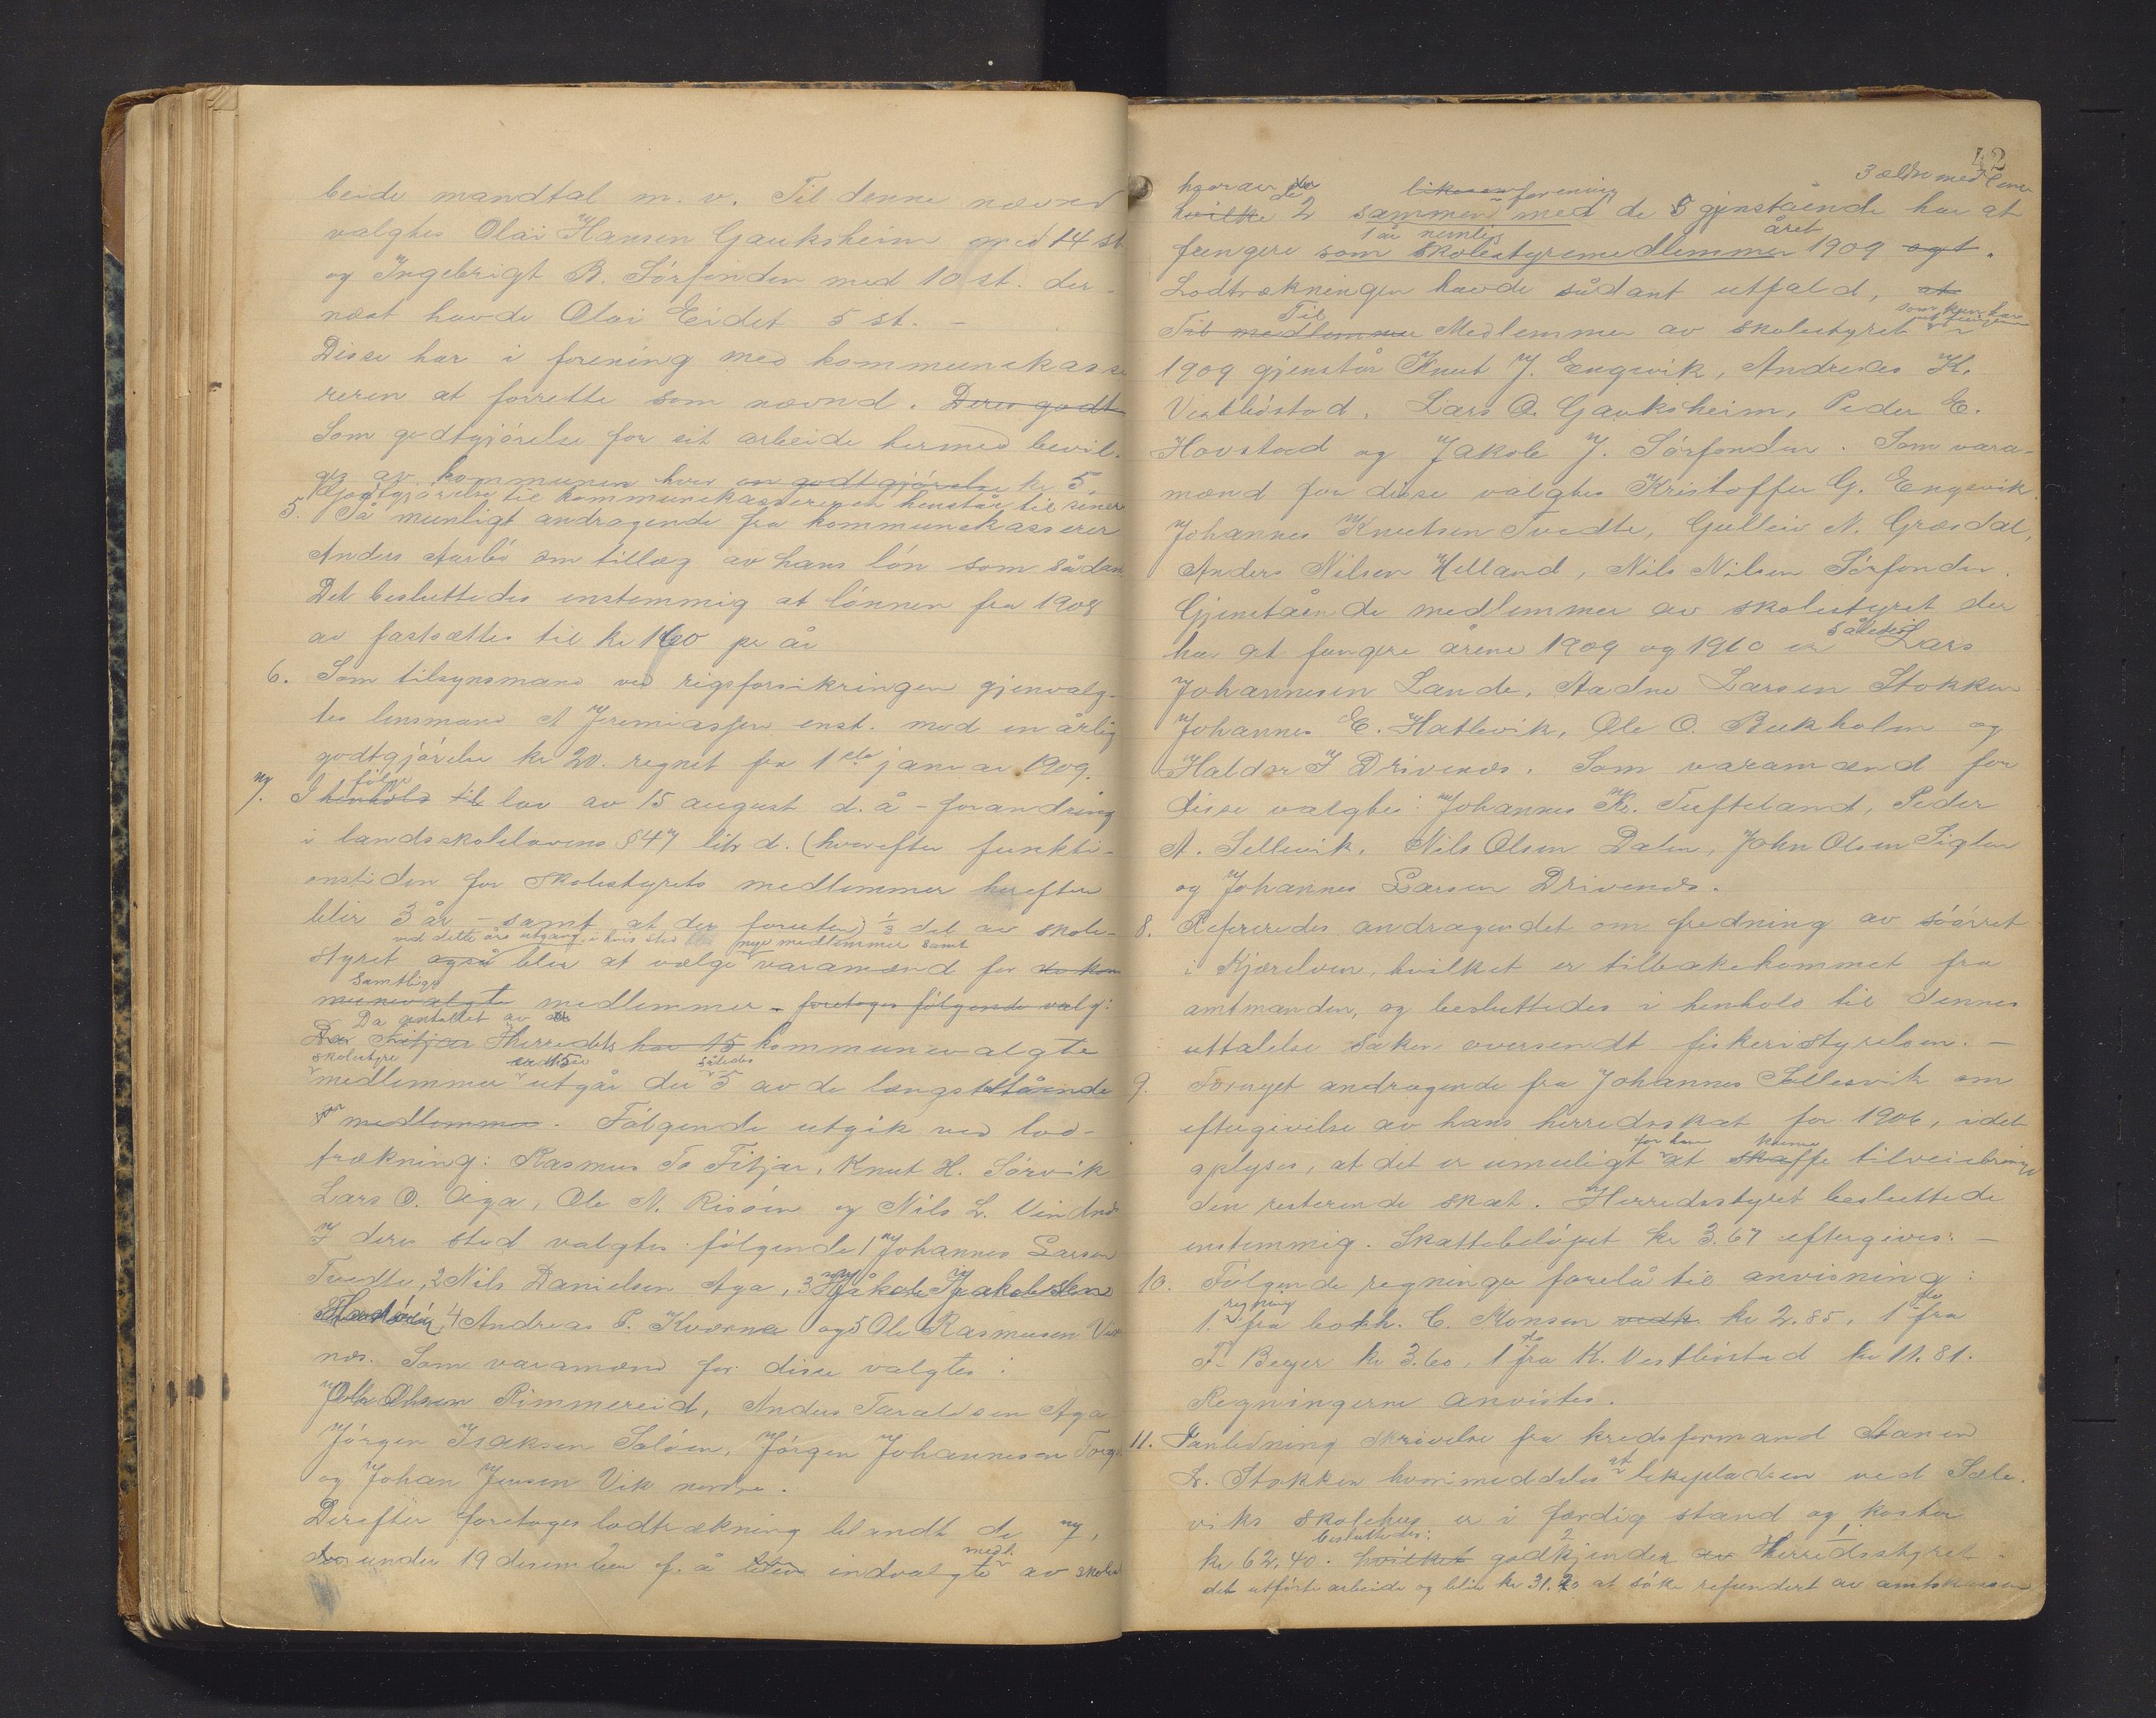 beide mandtal m. v. Til denne nævnd
valgtes Olai Hansen Gauksheim med 14 st
og Ingebrigt B. Sörfonden med 10 st. der-
næst havde Olai Eidet 5 st. -
Disse har i forening med kommunekasse
reren at forrette som nævnd. Deres godt
Som godtgjörelse for sit arbeide hermed bevil-
ges av kommunen hver en godtgjörelse kr 5.
Godtgjörelse til kommunekassereren henstår til senere
5. Så munligt andragende fra kommunekasserer
Anders Aarbö om tillæg av hans lön som sådan.
Det besluttedes enstemmig at lönnen fra 1908
av fastsættes til kr 160 pr år
6. Som tilsynsmand ved rigsforsikringen gjenvalg-
tes lensmand A Jeremiassen enst. med en årlig
godtgjörelse kr 20. regnet fra 1ste januar 1909.
følge
7. I henhold til lov av 15 august d. å - forandring
i landsskolelovens § 47 litr d. (hverefter funkti-
onstiden for skolestyrets medlemmer herefter
blir 3 år - samt at der foruten) 1/3 del av skole-
ved dette års utgang i hvis sted nye medlemmer samt
styret også blir at vælge varamænd for de kom
samtlige
munevalgte medlemmer - foretages fölgende valg:
Da antallet av de
Da Fitjar Herredets har 15 kommunevalgte
skolestyre er 15 således
medlemmer utgår der 5 av de længststående
medlemmer. Fölgende utgik ved lod-
trækning: Rasmus To Fitjar, Knut H. Sörvik
Lars O. Aga, Ole N. Risöen og Nils L. Vindnes
I deres sted valgtes fölgende 1 Johannes Larsen
Tvedte, 2 Nils Danielsen Aga, 3 Jakob Jakobsen
4 Andreas P. Kværne og 5 Ole Rasmusen Vest
nes. Som varamænd for disse valgtes:
Olsen Rimmereid, Anders Taraldsen Aga
Jörgen Isaksen Solöen, Jörgen Johannesen
og Johan Jensen Vik nordre.
Derefter foretages lodtrækning blandt de 7,
medl.
der under 19 desember f. å blev indvalgte av skolest
42
3 ældre med 1 ener
hvorav der likesom forening
hvilke 2 sammen med de 3 gjenstående har at
1 år nemlig året
fungere som skolestyremedlemmer 1909 ogt.
Lodtrækningen havde sådant utfald, at
Til som kun har
Til medlemmer Medlemmer av skolestyret
1909 gjenstår Knut J. Engevik, Andreas K.
Vestböstad, Lars O. Gauksheim, Peder E.
Hovstad og Jakob J. Sörfonden. Som vara-
mænd for disse valgtes Kristoffer G. Engevik
Johannes Knutsen Tvedte, Gulleiv N. Græsdal,
Anders Nilsen Helland, Nils Nilsen Sörfonden.
Gjenstående medlemmer av skolestyret der
således
har at fungere årene 1909 og 1910 er Lars
Johannesen Lande, Aadne Larsen Stokken
Johannes E. Hatlevik, Ole O. Bukholm og
Haldor J Drivenes. Som varamænd for
disse valgtes: Johannes Kr. Tufteland, Peder
A. Sellevik, Nils Olsen Dalen, John Olsen Siglen
og Johannes Larsen Drivenes.
8. Refereredes andragendet om fredning av sjöörret
i Kjærelven, hvilket er tilbakekommet fra
amtmanden, og besluttedes i henhold til dennes
uttalelse saken oversendt fiskeristyrelsen. -
9. Fornyet andragende fra Johannes Sællesvik om
eftergivelse av hans herredsskat for 1906, idet
for ham kunne
oplyses, at det er umuligt at skaffe tilveiebringe
den resterende skat. Herredsstyret besluttede
enstemmig. Skattebelöpet kr 3.67 eftergives: -
10. Fölgende regninger forelå til anvisning:
regning do
1. fra bokh. C. Monsen vedk. kr 2.85, 1 fra
do
F. Beyer kr 3.60, 1 fra K. Vestböstad kr 11.81.
Regningerne anvistes.
11. I anledning skrivelse fra kredsformand
at
L. Stokken hvori meddeles lekepladsen ved Sæle-
viks skolehus er i færdig stand og koster
besluttedes: 2 1
kr 62,40. hvilket godkjender av Herredsstyret
det utförte arbeide og blir kr 31.20 at söke refundert av amtskassen